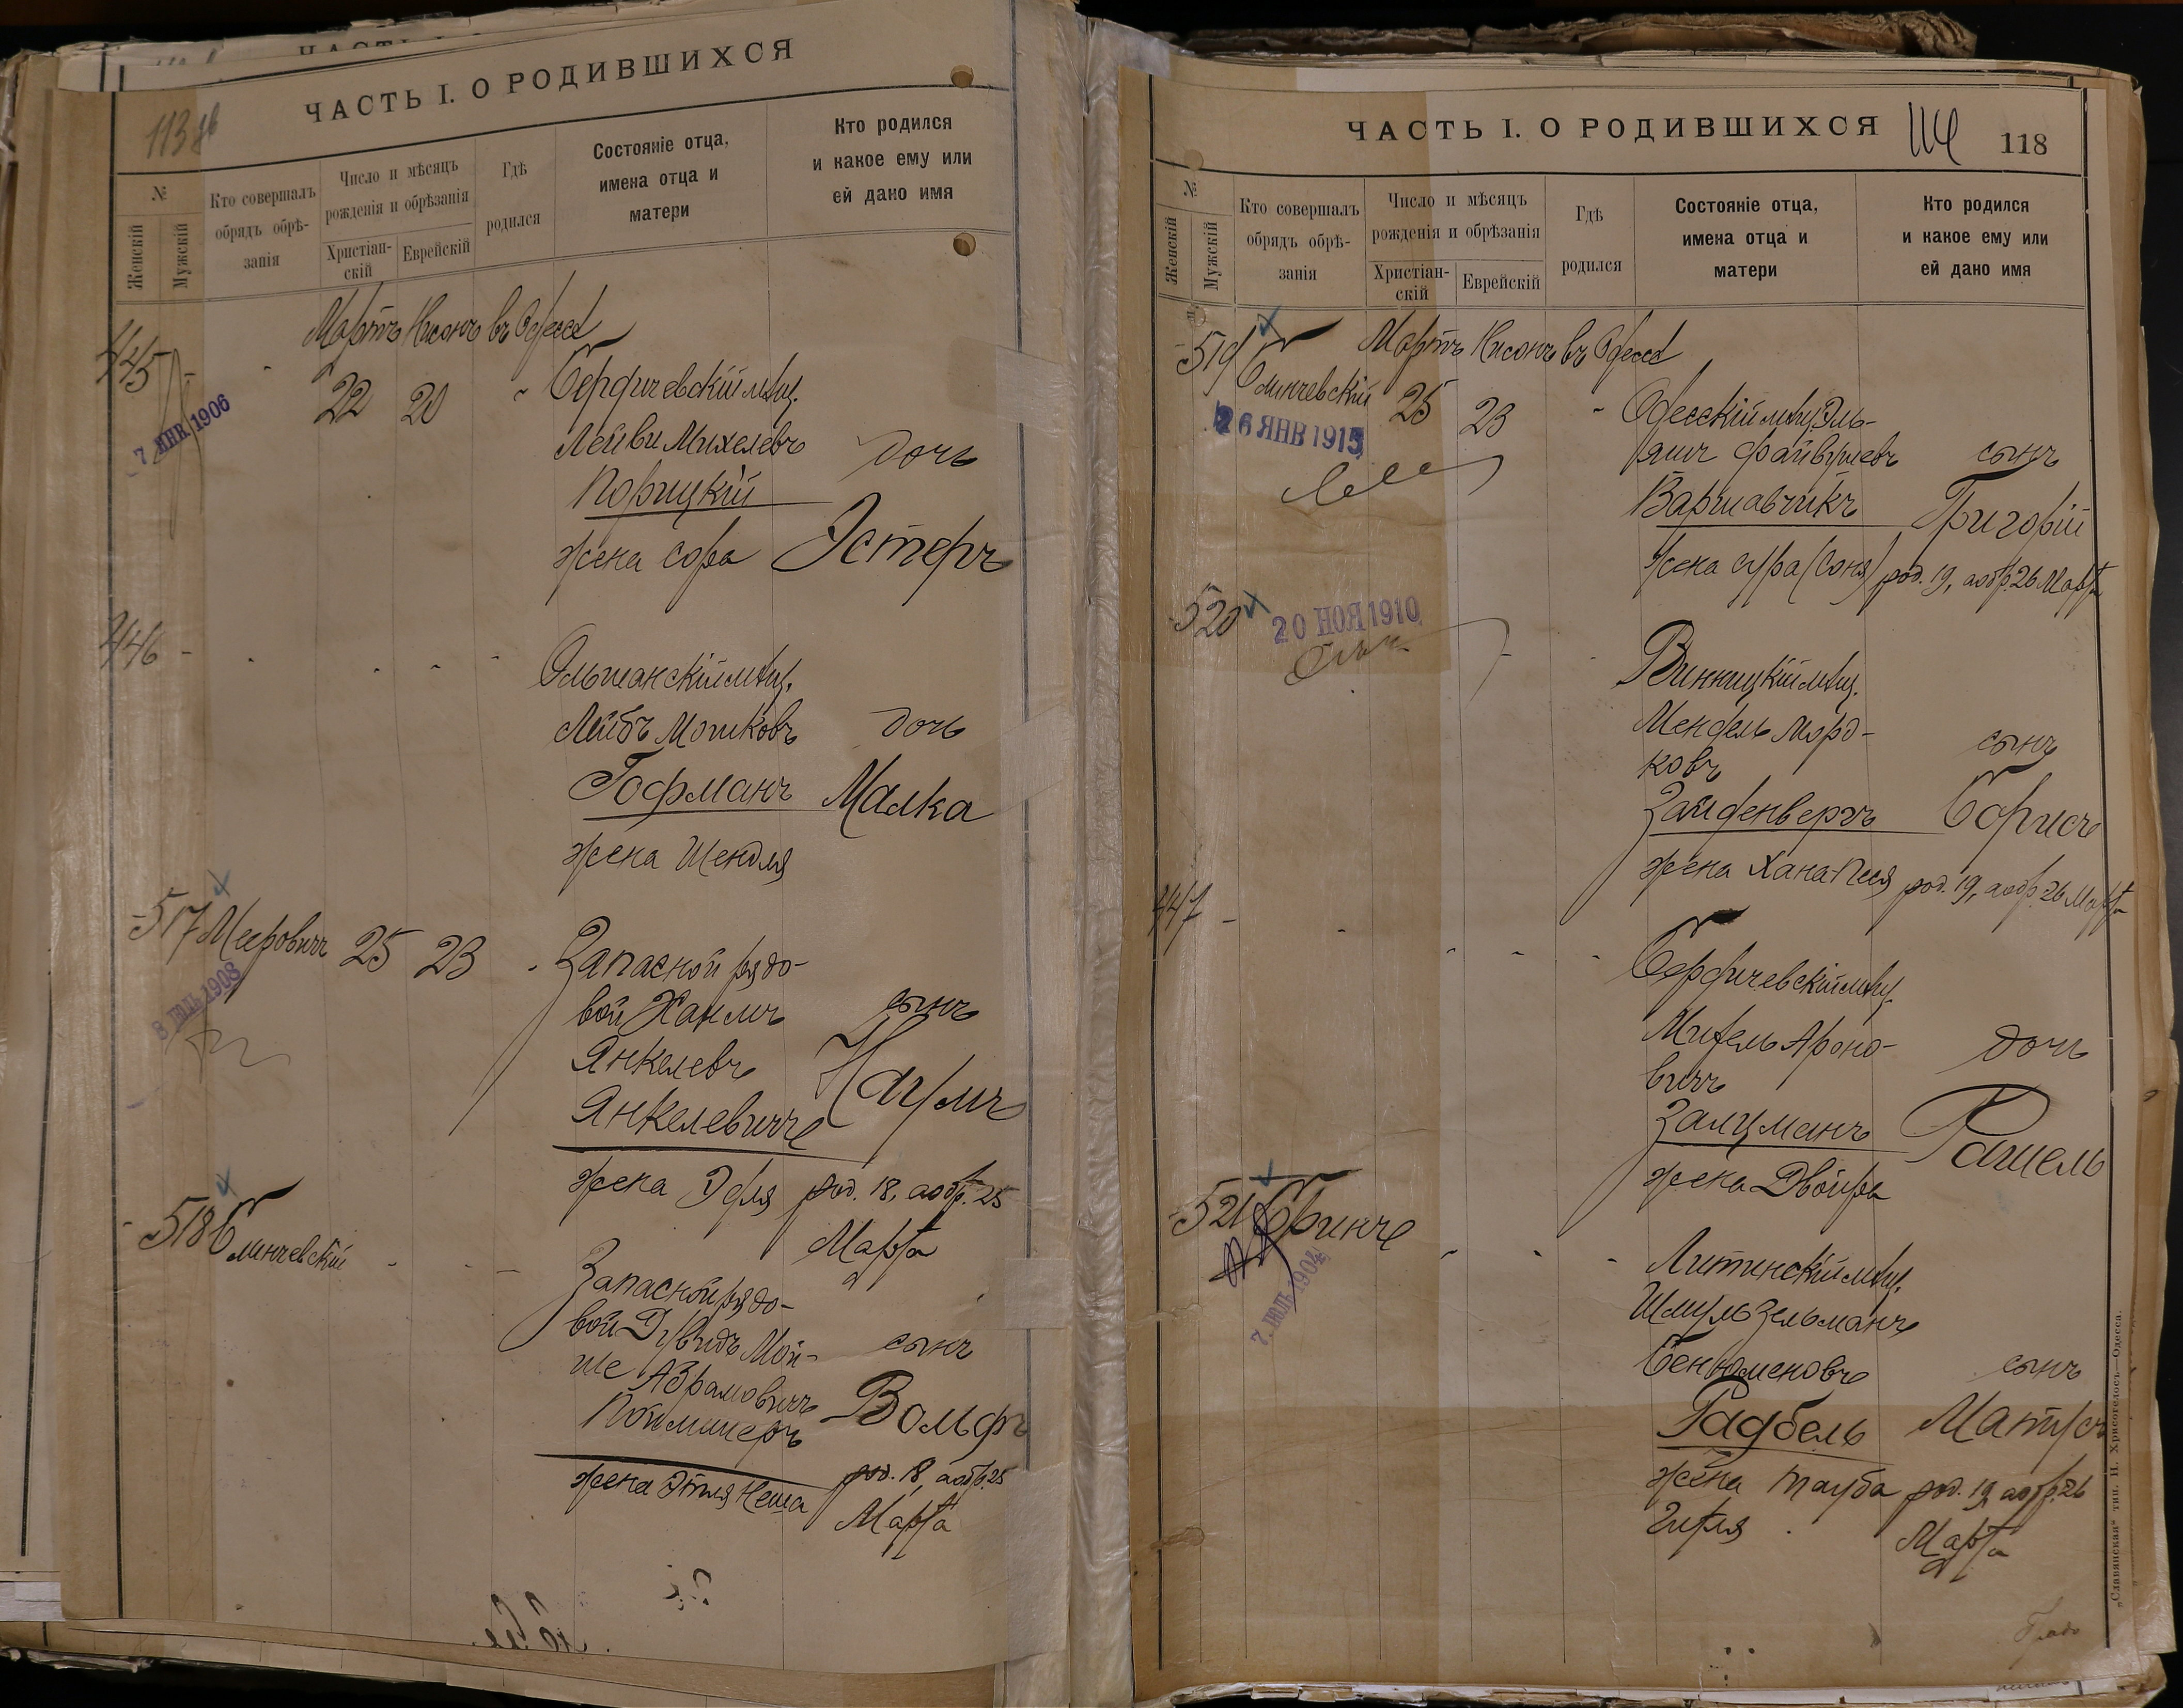 ЧАСТЬ I. О РОДИВШИХСЯ
113 об
№
Женскій
Мужскій
Кто совершалъ
обрядъ обрѣ-
занія
Число и мѣсяцъ
рожденія и обрѣзанія
Христіан-
скій
Еврейскій
Гдѣ
родился
Состояніе отца,
имена отца и
матери
Кто родился
и какое ему или
ей дано имя
Мартъ Нисонъ въ Одессѣ
445
7 ЯНВ 1906
22 20
Бердичевскій мѣщ.
Лейви Михелевъ
Порицкій
жена Сора
дочь
Эстеръ
446
Ольшанскій мѣщ.
Лейбъ Мошковъ
Гофманъ
жена Шендля
дочь
Малка
517 Мееровичъ 25 23
8 ІЮЛЬ 1908
Запасной рядо-
вой Хаимъ
Янкелевъ
Янкелевичъ
жена Эдля
сынъ
Наумъ
род. 18, а обр. 25
Марта
518 Блинчевскій
Запасной рядо-
вой Дувидъ Мой-
ше Абрамовичъ
Поймишеръ
жена Этля Неша
сынъ
Вольфъ
род. 18, а обр. 25
Марта
ЧАСТЬ I. О РОДИВШИХСЯ
114
118
№
Женскій
Мужскій
Кто совершалъ
обрядъ обрѣ-
занія
Число и мѣсяцъ
рожденія и обрѣзанія
Христіан-
скій
Еврейскій
Гдѣ
родился
Состояніе отца,
имена отца и
матери
Кто родился
и какое ему или
ей дано имя
Мартъ Нисонъ въ Одессѣ
519 Блинчевскій 25 23
26 ЯНВ 1915
Одесскій мѣщ. Эль-
яшъ Файвушевъ
Варшавчикъ
жена Сура (Соня)
сынъ
Григорій
род. 19, а обр. 26 Марта
520
20 НОЯ 1910
Винницкій мѣщ.
Мендель Морд-
ковъ
Зайденвергъ
жена Хана-Песя
сынъ
Борисъ
род. 19, а обр. 26 Марта
447
Бердичевскій мѣщ.
Михель Ароно-
вичъ
Залцманъ
жена Двойра
дочь
Рашель
521 Бринчъ
7. ІЮЛЬ 1904
Литинскій мѣщ.
Шмуль Зельманъ
Бенюменовъ
Радбель
жена Тауба
Гитля
сынъ
Матусъ
род. 19, а обр. 26
Марта
„Славянская“ тип. Н. Хрисогелосъ—Одесса.